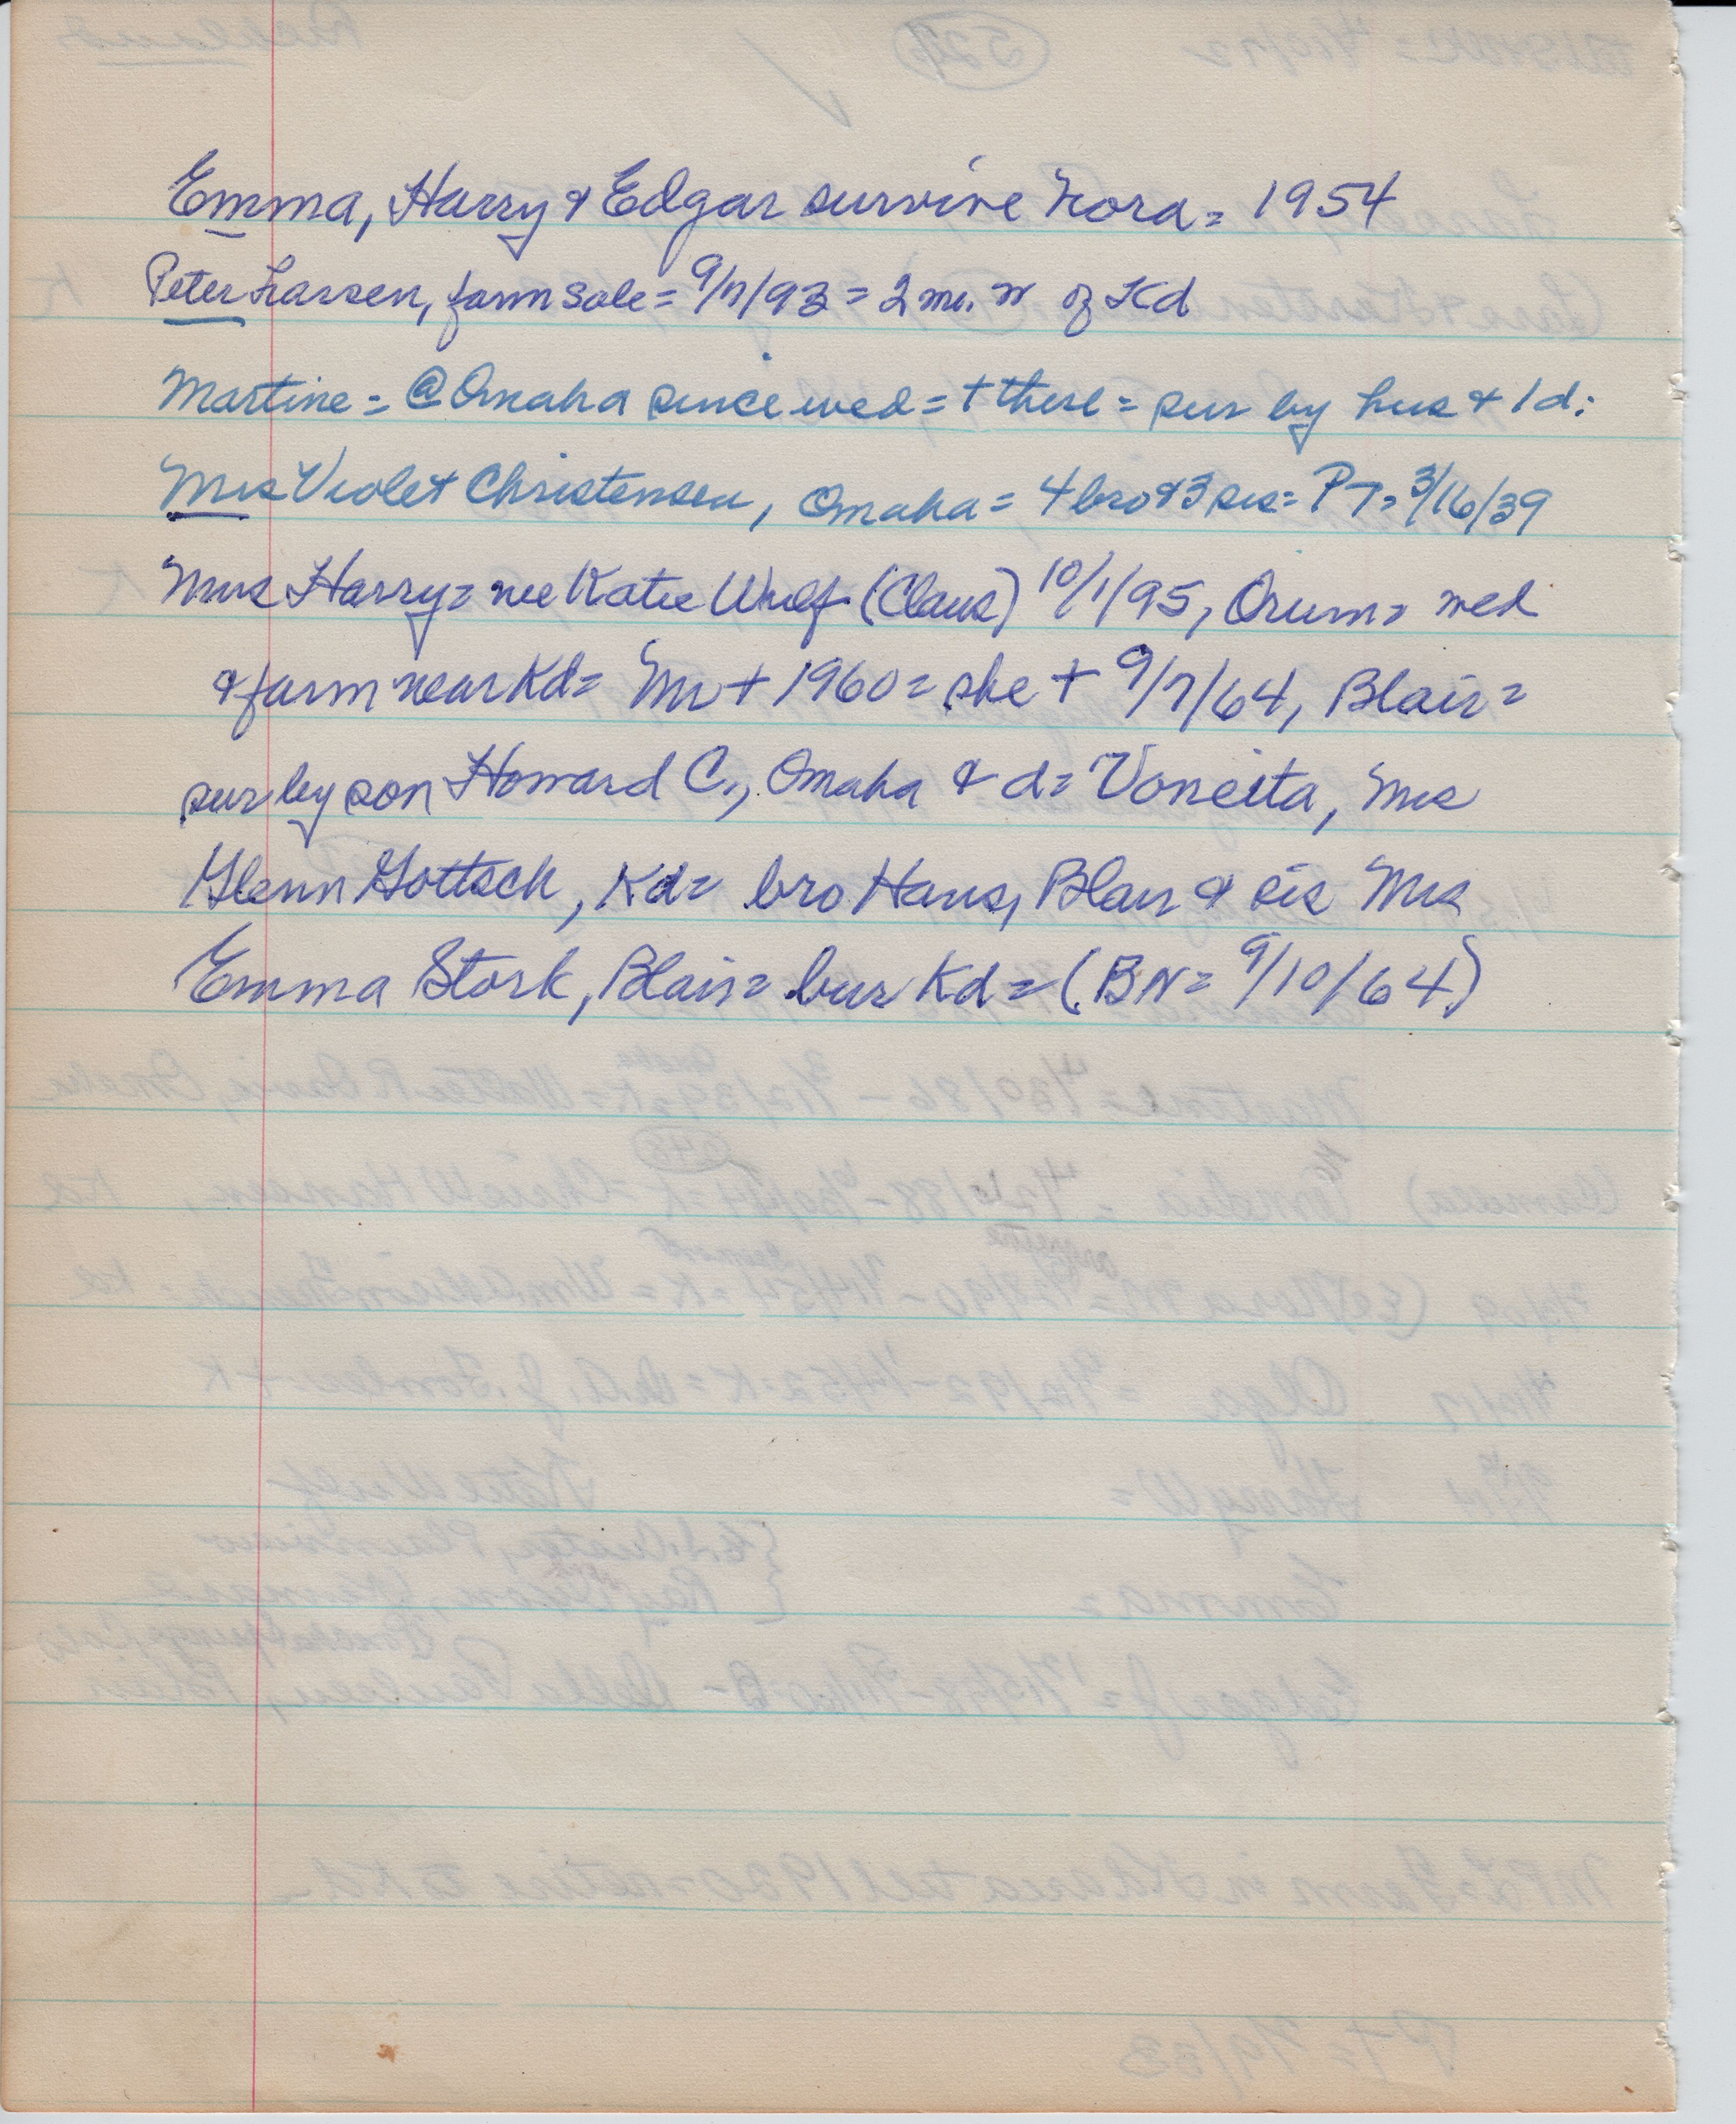 Emma, Harry & Edgar survive Nora = 1954
Peter Larsen, farm sale = 9/7/93 = 2 mi. n of Kd
Martine = @ Omaha since wed = + there = sur by hus & 1 d:
Mrs Violet Christensen, Omaha = 4 bro & 3 sis = PT = 3/16/39
Mrs Harry = nee Katie Wulf (Claus) 10/1/95, Orum = wed
& farm near Kd = Mr + 1960 = she + 9/7/64, Blair =
sur by son Howard C., Omaha & d = Voneita, Mrs
Glenn Gottsch, Kd = bro Hans, Blair & sis Mrs
Emma Stork, Blair = bur Kd = (BN = 9/10/64)